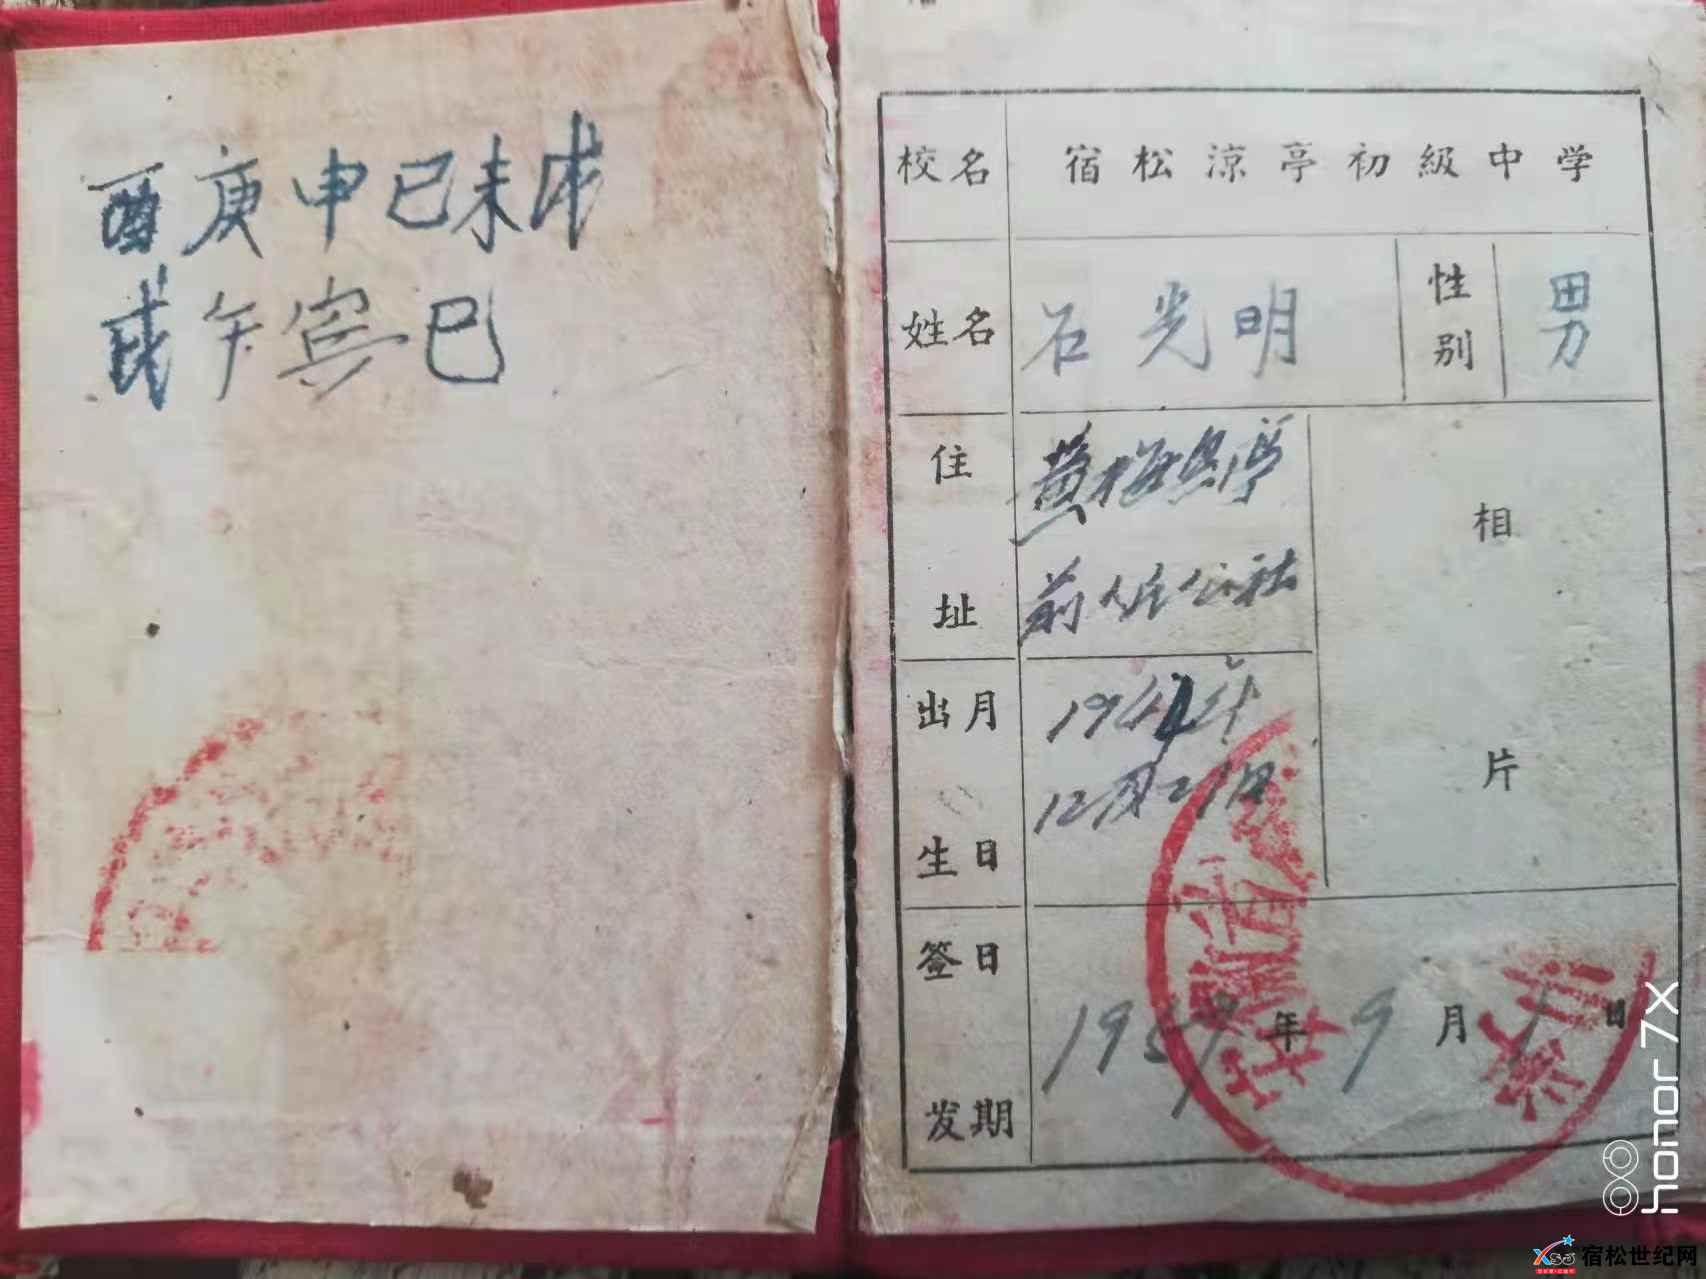 酉庚申已未戌
戌午寅巳
校名 宿松涼亭初級中学
姓名 石光明 性别 男
住址 黄梅
前 公社
相片
出生月日 1944年
12月21日
签发日期 1959年9月1日
honor 7X
XSSJ 宿松世纪网